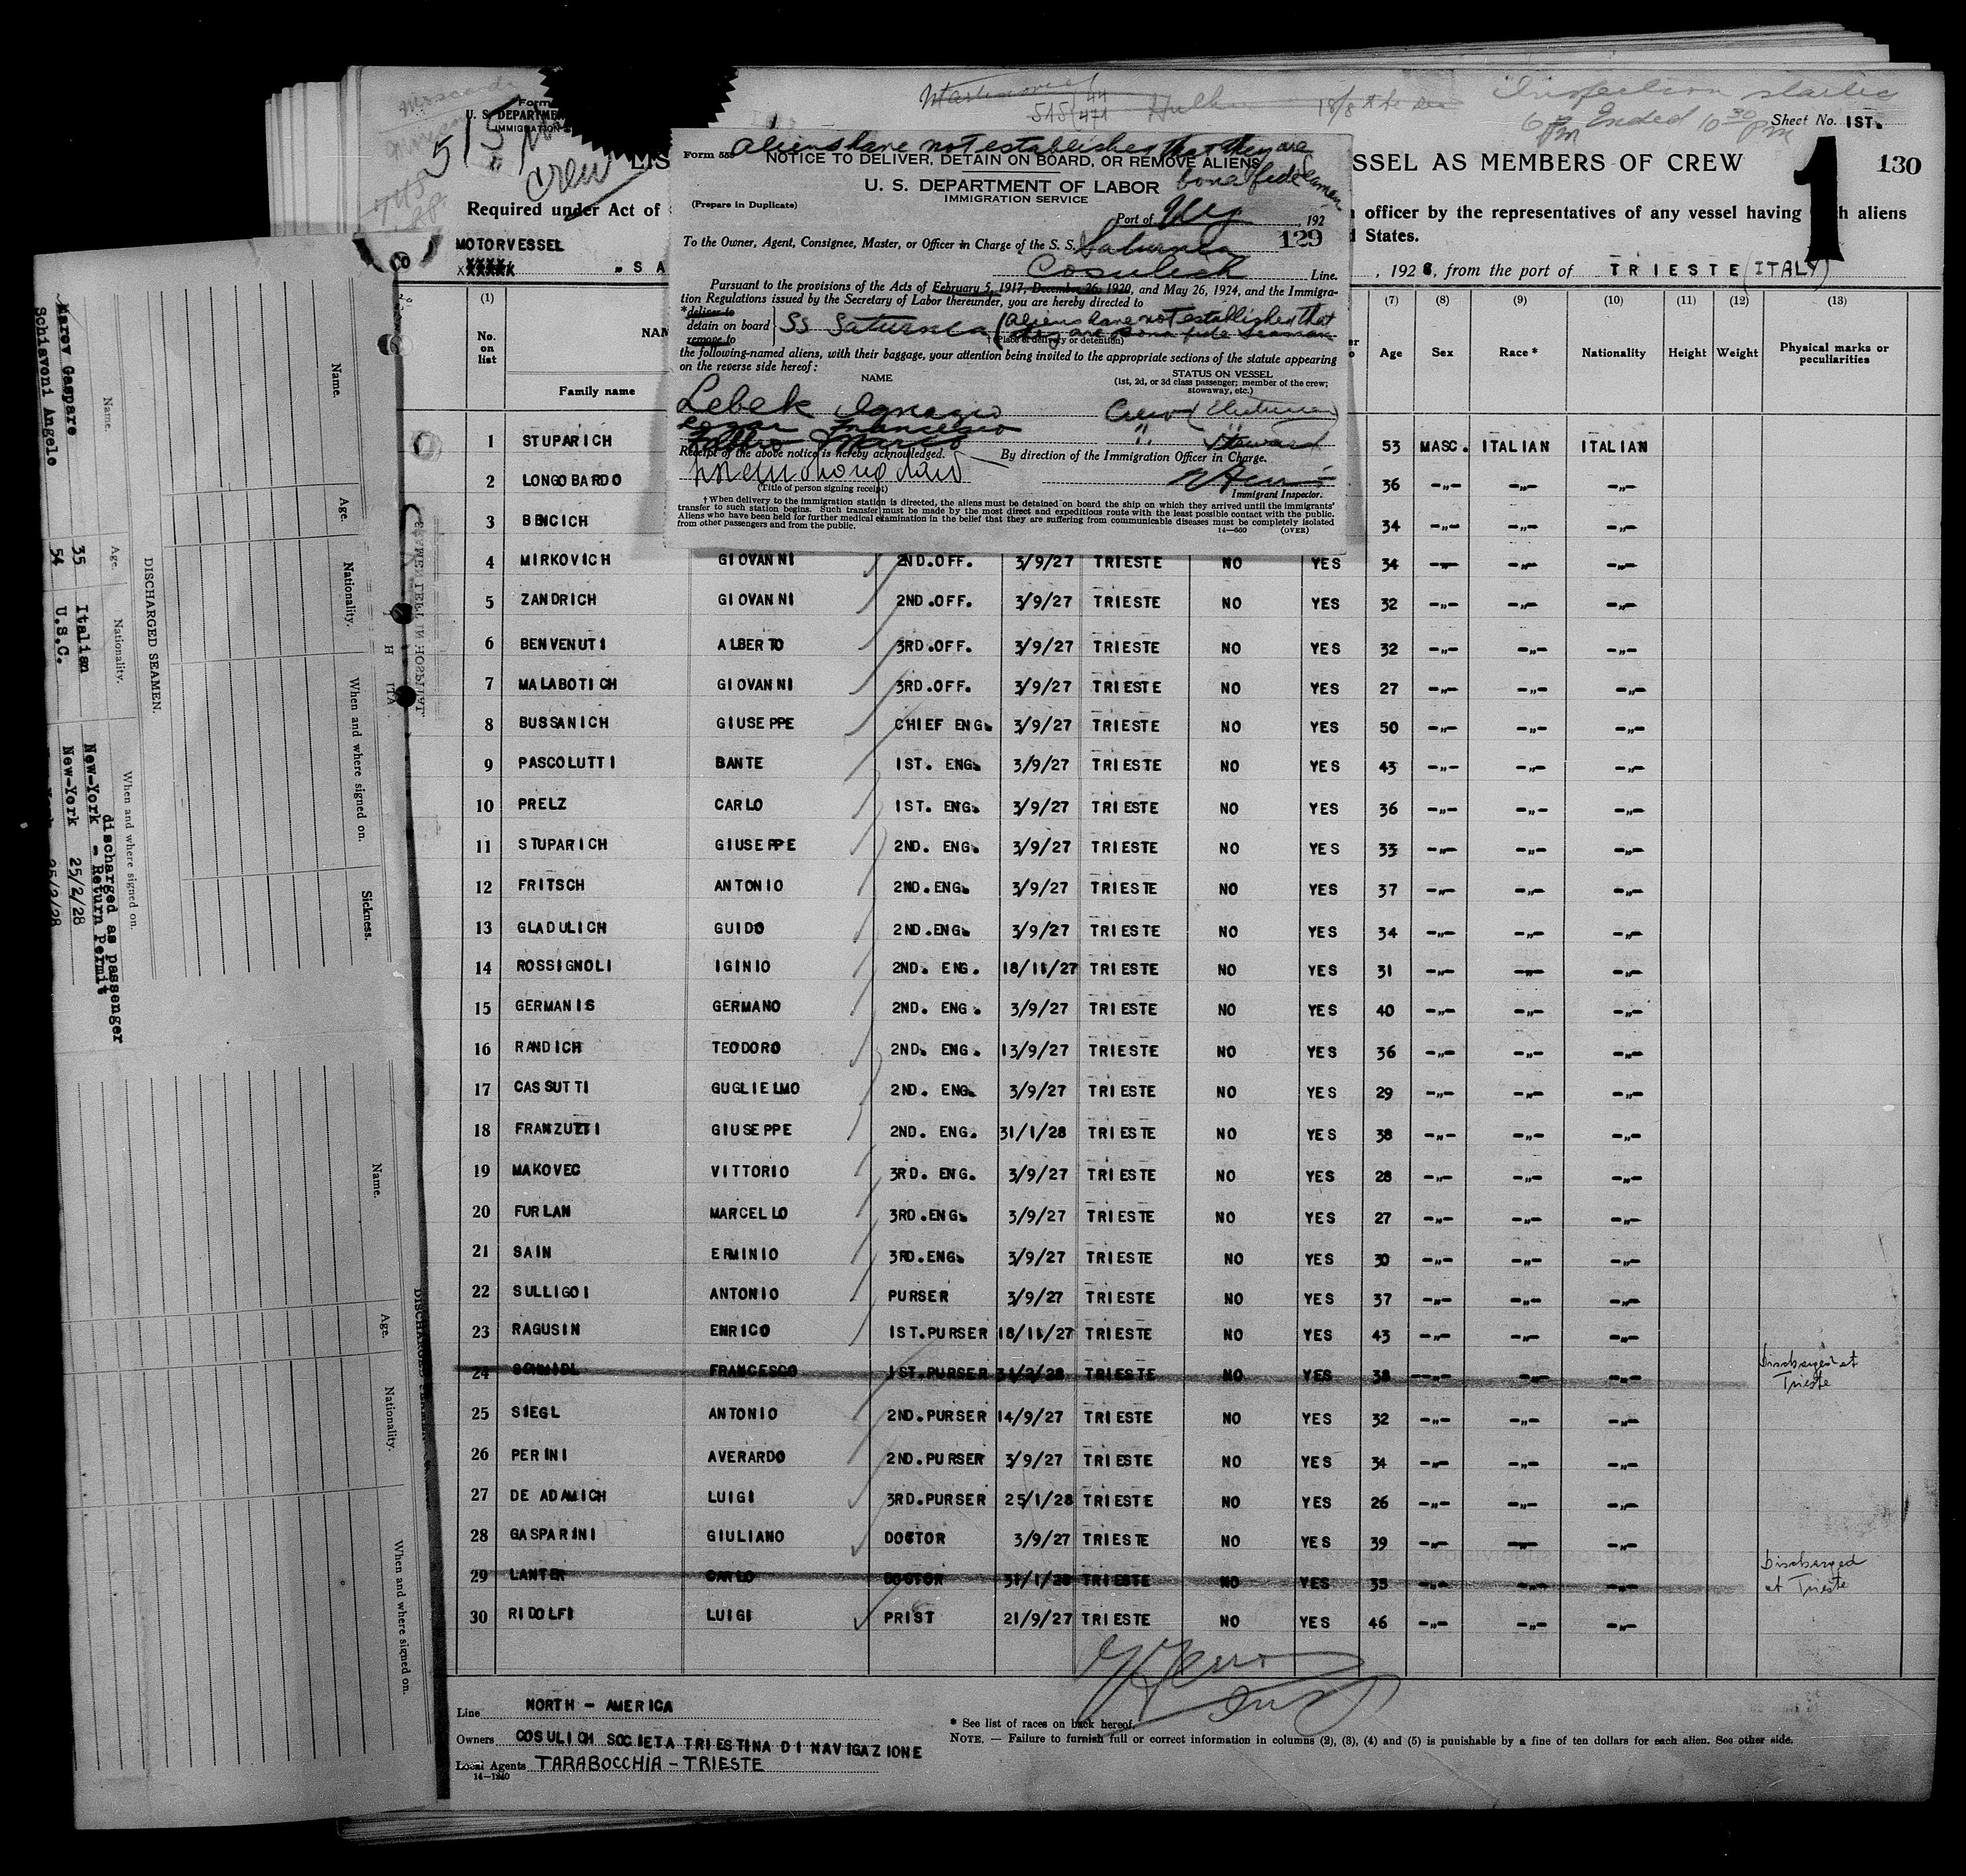 Inspection started
6 PM Ended 10 30 PM
Sheet No. 1ST.
515
Crew
U. S. DEPARTME
IMMIGRATION
SSEL AS MEMBERS OF CREW
1
130
Required under Act of
officer by the representatives of any vessel having
aliens
States.
MOTORVESSEL
„ S A
, 1928, from the port of TRIESTE (ITALY)
aliens have not established that they are
bona fide seamen
Form 555
NOTICE TO DELIVER, DETAIN ON BOARD, OR REMOVE ALIENS
U. S. DEPARTMENT OF LABOR
IMMIGRATION SERVICE
(Prepare in Duplicate)
Port of NY , 192
129
To the Owner, Agent, Consignee, Master, or Officer in Charge of the S. S. Saturnia
Cosulich Line.
Pursuant to the provisions of the Acts of February 5, 1917, December 26, 1920, and May 26, 1924, and the Immigra-
tion Regulations issued by the Secretary of Labor thereunder, you are hereby directed to
*deliver to
detain on board
remove to
SS Saturnia (aliens have not established that
they are bona fide seaman
† (Place of delivery or detention)
the following-named aliens, with their baggage, your attention being invited to the appropriate sections of the statute appearing
on the reverse side hereof:
NAME
STATUS ON VESSEL
(1st, 2d, or 3d class passenger; member of the crew;
stowaway, etc.)
Lebek Ignazio Crew
Francesco "
Marco Steward
Receipt of the above notice is hereby acknowledged.
By direction of the Immigration Officer in Charge.
(Title of person signing receipt)
Immigrant Inspector.
† When delivery to the immigration station is directed, the aliens must be detained on board the ship on which they arrived until the immigrants'
transfer to such station begins. Such transfer must be made by the most direct and expeditious route with the least possible contact with the public.
Aliens who have been held for further medical examination in the belief that they are suffering from communicable diseases must be completely isolated
from other passengers and from the public.
14—660 (OVER)
(1) (7) (8) (9) (10) (11) (12) (13)
No. on list
NAM
Family name
Age Sex Race * Nationality Height Weight Physical marks or peculiarities
1 STUPARICH 53 MASC. ITALIAN ITALIAN
2 LONGOBARDO 36 -„- -„- -„-
3 BENCICH 34 -„- -„- -„-
4 MIRKOVICH GIOVANNI 2ND.OFF. 3/9/27 TRIESTE NO YES 34 -„- -„- -„-
5 ZANDRICH GIOVANNI 2ND.OFF. 3/9/27 TRIESTE NO YES 32 -„- -„- -„-
6 BENVENUTI ALBERTO 3RD.OFF. 3/9/27 TRIESTE NO YES 32 -„- -„- -„-
7 MALABOTICH GIOVANNI 3RD.OFF. 3/9/27 TRIESTE NO YES 27 -„- -„- -„-
8 BUSSANICH GIUSEPPE CHIEF ENG. 3/9/27 TRIESTE NO YES 50 -„- -„- -„-
9 PASCOLUTTI BANTE 1ST. ENG. 3/9/27 TRIESTE NO YES 43 -„- -„- -„-
10 PRELZ CARLO 1ST. ENG. 3/9/27 TRIESTE NO YES 36 -„- -„- -„-
11 STUPARICH GIUSEPPE 2ND. ENG. 3/9/27 TRIESTE NO YES 33 -„- -„- -„-
12 FRITSCH ANTONIO 2ND.ENG. 3/9/27 TRIESTE NO YES 37 -„- -„- -„-
13 GLADULICH GUIDO 2ND.ENG. 3/9/27 TRIESTE NO YES 34 -„- -„- -„-
14 ROSSIGNOLI IGINIO 2ND. ENG. 18/11/27 TRIESTE NO YES 31 -„- -„- -„-
15 GERMANIS GERMANO 2ND. ENG. 3/9/27 TRIESTE NO YES 40 -„- -„- -„-
16 RANDICH TEODORO 2ND. ENG. 13/9/27 TRIESTE NO YES 36 -„- -„- -„-
17 CASSUTTI GUGLIELMO 2ND. ENG. 3/9/27 TRIESTE NO YES 29 -„- -„- -„-
18 FRANZUTTI GIUSEPPE 2ND. ENG. 31/1/28 TRIESTE NO YES 38 -„- -„- -„-
19 MAKOVEC VITTORIO 3RD. ENG. 3/9/27 TRIESTE NO YES 28 -„- -„- -„-
20 FURLAN MARCELLO 3RD.ENG. 3/9/27 TRIESTE NO YES 27 -„- -„- -„-
21 SAIN ERMINIO 3RD.ENG. 3/9/27 TRIESTE NO YES 30 -„- -„- -„-
22 SULLIGOI ANTONIO PURSER 3/9/27 TRIESTE NO YES 37 -„- -„- -„-
23 RAGUSIN ENRICO 1ST.PURSER 18/11/27 TRIESTE NO YES 43 -„- -„- -„-
24 SCHMIDL FRANCESCO 1ST.PURSER 31/2/28 TRIESTE NO YES 38 -„- -„- -„- Discharged at Trieste
25 SIEGL ANTONIO 2ND.PURSER 14/9/27 TRIESTE NO YES 32 -„- -„- -„-
26 PERINI AVERARDO 2ND.PURSER 3/9/27 TRIESTE NO YES 34 -„- -„- -„-
27 DE ADAMICH LUIGI 3RD.PURSER 25/1/28 TRIESTE NO YES 26 -„- -„- -„-
28 GASPARINI GIULIANO DOCTOR 3/9/27 TRIESTE NO YES 39 -„- -„- -„-
29 LANTER CARLO DOCTOR 31/1/28 TRIESTE NO YES 35 -„- -„- -„- Discharged at Trieste
30 RIDOLFI LUIGI PRIST 21/9/27 TRIESTE NO YES 46 -„- -„- -„-
Line NORTH - AMERICA
Owners COSULICH SOCIETA TRIESTINA DI NAVIGAZIONE
Local Agents TARABOCCHIA - TRIESTE
14—1240
* See list of races on back hereof.
NOTE. — Failure to furnish full or correct information in columns (2), (3), (4) and (5) is punishable by a fine of ten dollars for each alien. See other side.
Name. Age. Nationality. When and where signed on. Sickness.
DISCHARGED SEAMEN.
Name. Age. Nationality. When and where signed on.
discharged as passenger
Marov Gaspare 35 Italian New-York - Return Permit
Schiavoni Angelo 54 U.S.C. New-York 25/2/28
25/2/28
Name. Age. Nationality. When and where signed on.